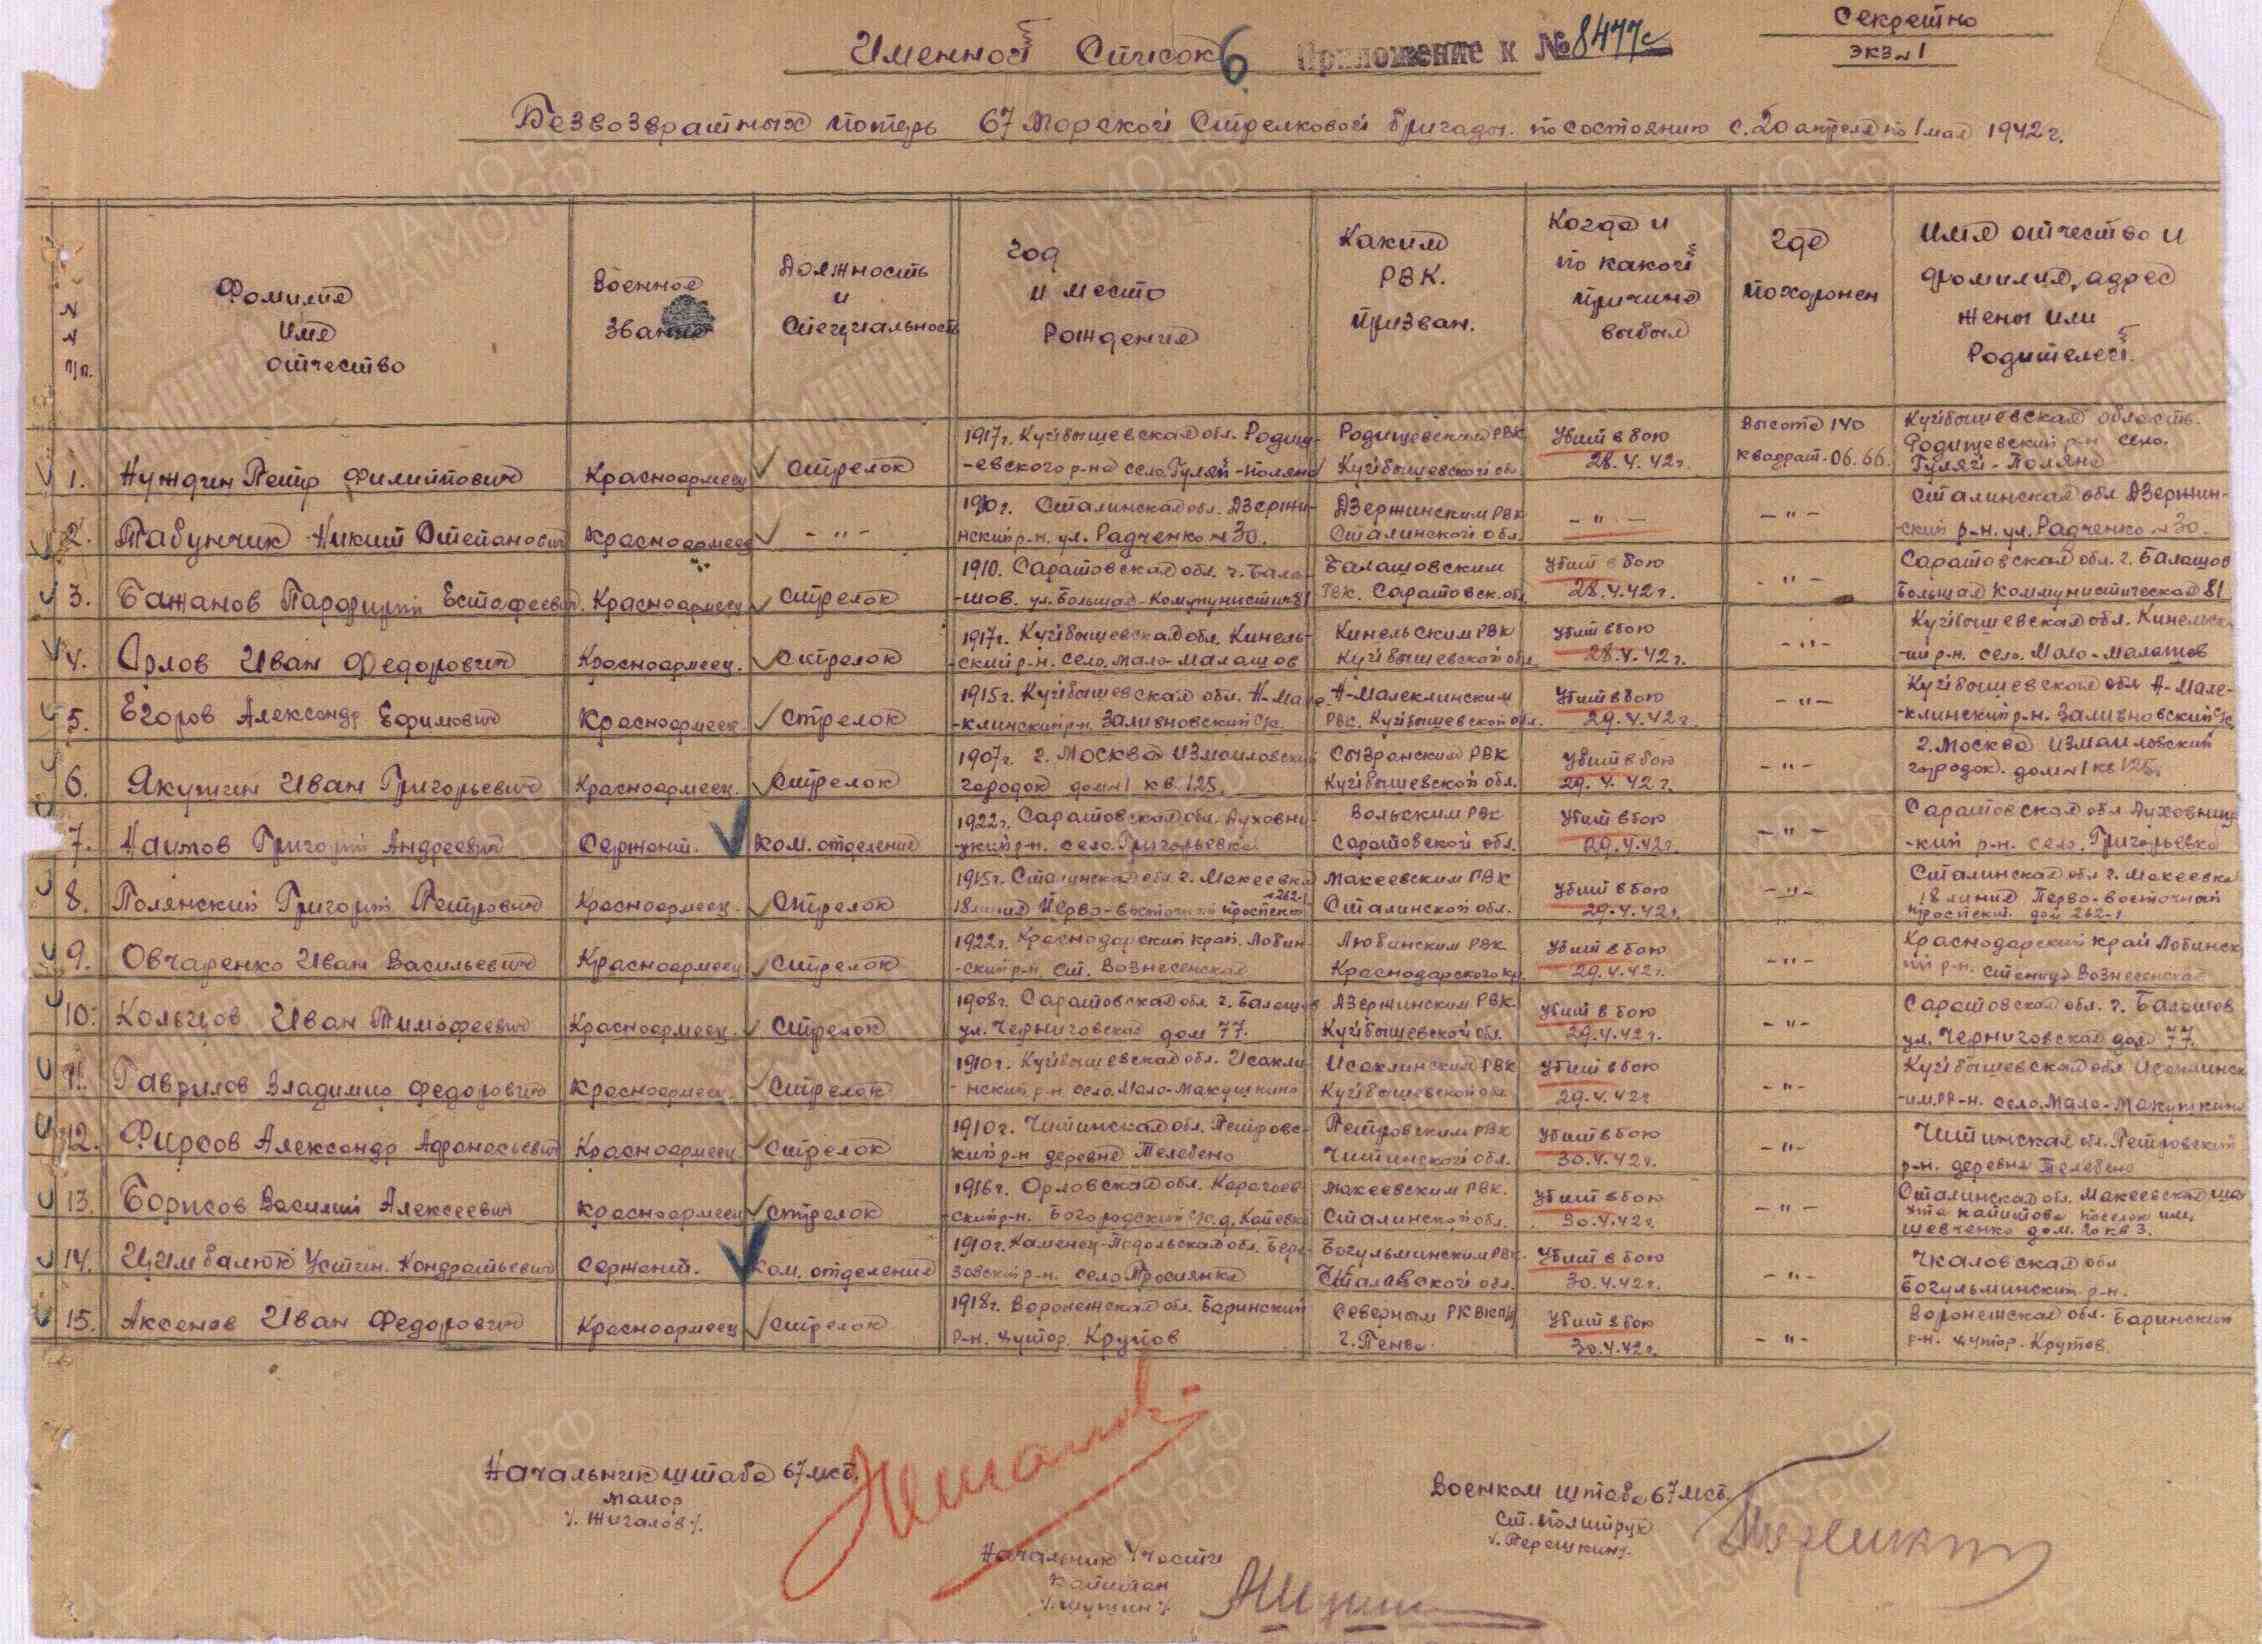 Секретно
экз №1
Именной Список 6 Приложение к № 8477с
Безвозвратных потерь 67 Морской Стрелковой бригады. по состоянию с. 20 апреля по 1 мая 1942 г.
№ № п/п.
Фамилия Имя отчество
Военное звание
Должность и специальность
год и место Рождения
Каким РВК. призван.
Когда и по какой причине выбыл
где похоронен
Имя отчество и фамилия, адрес жены или Родителей.
1. Нуждин Петр Филиппович Красноармеец стрелок 1917г. Куйбышевская обл. Родищ-
-евского р-на село Гуляй-Поляна Родищевским РВК Куйбышевской об. Убит в бою 28.4.42г. Высота 140 квадрат. 06.66. Куйбышевская область. Родищевский р-н село. Гуляй-Поляна
2. Табунчик Никит Степанович Красноармеец -"- 1910г. Сталинская обл. Дзержи-
нский р-н. ул. Радченко №30. Дзержинским РВК Сталинской обл. -"- -"- Сталинская обл Дзержин-
-ский р-н. ул. Радченко №30.
3. Бажанов Парфирий Естафеевич. Красноармеец стрелок 1910. Саратовская обл. г. Бала-
-шов. ул. Большая-Коммунистич 81 Балашовским РВК. Саратовск. обл. Убит в бою 28.4.42г. -"- Саратовская обл. г. Балашов
Большая Коммунистическая 81
4. Орлов Иван Федорович Красноармеец. стрелок 1917г. Куйбышевская обл. Кинель-
-ский р-н. село. Мало-Малашов Кинельским РВК Куйбышевской обл. Убит в бою 28.4.42г. -"- Куйбышевская обл. Кинельск-
-ий р-н. село. Мало-Малашов
5. Егоров Александр Ефимович Красноармеец стрелок 1915г. Куйбышевская обл. Н-Мале-
-клинский р-н. Заливновский с/с. Н-Малеклинским РВК. Куйбышевской обл. Убит в бою 29.4.42г. -"- Куйбышевская обл Н-Мале-
-клинский р-н. Заливновский с/с
6. Якушин Иван Григорьевич Красноармеец. стрелок 1907г. г. Москва Измаиловский
городок дом №1 кв. 125. Сызранским РВК Куйбышевской обл. Убит в бою 29.4.42г. -"- г. Москва Измаиловский
городок. дом №1 кв 125.
7. Наумов Григорий Андреевич Сержант. Ком. отделения 1922г. Саратовская обл. Духовни-
-цкий р-н. село. Григорьевка Вольским РВК Саратовской обл. Убит в бою 29.4.42г. -"- Саратовская обл Духовниц-
-кий р-н. село. Григорьевка
8. Полянский Григорий Петрович Красноармеец. стрелок 1915г. Сталинская обл. г. Макеевка
18 линия Перво-восточный проспект №262-1 Макеевским РВК Сталинской обл. Убит в бою 29.4.42г. -"- Сталинская обл г. Макеевка
18 линия Перво-восточный
проспект. дом 262-1
9. Овчаренко Иван Васильевич Красноармеец стрелок 1922г. Краснодарский край. Лобин-
-ский р-н. ст. Вознесенская Любинским РВК Краснодарского кр. Убит в бою 29.4.42г. -"- Краснодарский край Лобинск-
ий р-н. станица Вознесенская
10. Кольцов Иван Тимофеевич Красноармеец. стрелок 1908г. Саратовская обл. г. Балашов
ул. Черниговская дом 77. Дзержинским РВК Куйбышевской обл. Убит в бою 29.4.42г. -"- Саратовская обл. г. Балашов
ул. Черниговская дом 77.
11. Гаврилов Владимир Федорович Красноармеец. стрелок 1910г. Куйбышевская обл. Исакли-
-нский р-н. село. Мало-Макушкино Исаклинским РВК Куйбышевской обл. Убит в бою 29.4.42г -"- Куйбышевская обл Исаклинск-
-им. р-н. село. Мало-Макушкино
12. Фирсов Александр Афонасьевич Красноармеец стрелок 1910г. Читинская обл. Петровс-
кий р-н деревня Телебено Петровским РВК Читинской обл. Убит в бою 30.4.42г. -"- Читинская обл. Петровский
р-н. деревня Телебено
13. Борисов Василий Алексеевич Красноармеец стрелок 1916г. Орловская обл. Карачаев-
ский р-н. Богородский с/с. д. Копевка Макеевским РВК. Сталинской обл. Убит в бою 30.4.42г. -"- Сталинская обл. Макеевская шах-
та капитова поселок им.
Шевченко дом. 20 кв 3.
14. Цимбалюк Устин. Кондратьевич Сержант. Ком. отделения 1910г. Каменец-Подольская обл. Бере-
зовский р-н. село Просиянка Богульминским РВК. Чкаловской обл. Убит в бою 30.4.42г. -"- Чкаловская обл
Богульминский р-н.
15. Аксенов Иван Федорович Красноармеец стрелок 1918г. Воронежская обл. Баринский
р-н. хутор. Крутов Северным РК ВКП/б г. Пенза. Убит в бою 30.4.42г. -"- Воронежская обл. Баринский
р-н. хутор. Крутов.
Начальник штаба 67 мсб.
майор
/. Жигалов /.
Военком штаба 67 мсб.
Ст. политрук
/. Терешкин /.
Начальник 4 части
Капитан
/. Шушин /.